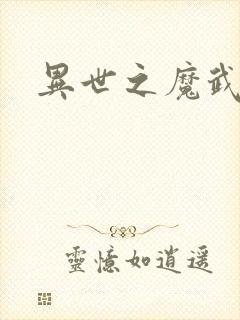 異世之魔武
靈憶如逍遥